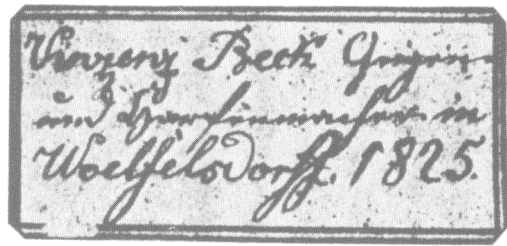 Vinzenz Beck Geigen=
und Harfenmacher in
Woelfelsdorff. 1825.